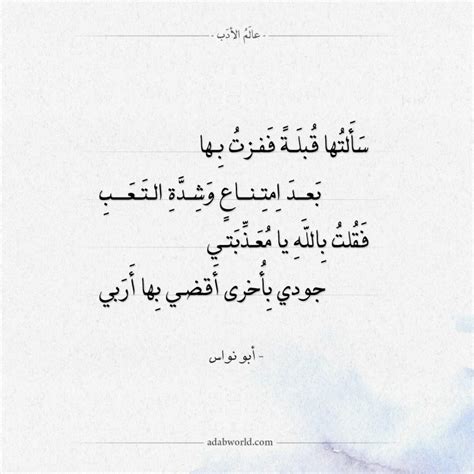 · عالَمُ الأدَب ·
سَأَلتُها قُبلَةً فَفزتُ بِها
بَعدَ اِمتِناعٍ وَشِدَّةِ التَعَبِ
فَقُلتُ بِاللَهِ يا مُعَذِّبَتي
جودي بِأُخرى أَقضي بِها أَرَبي
- أبو نواس
adabworld.com